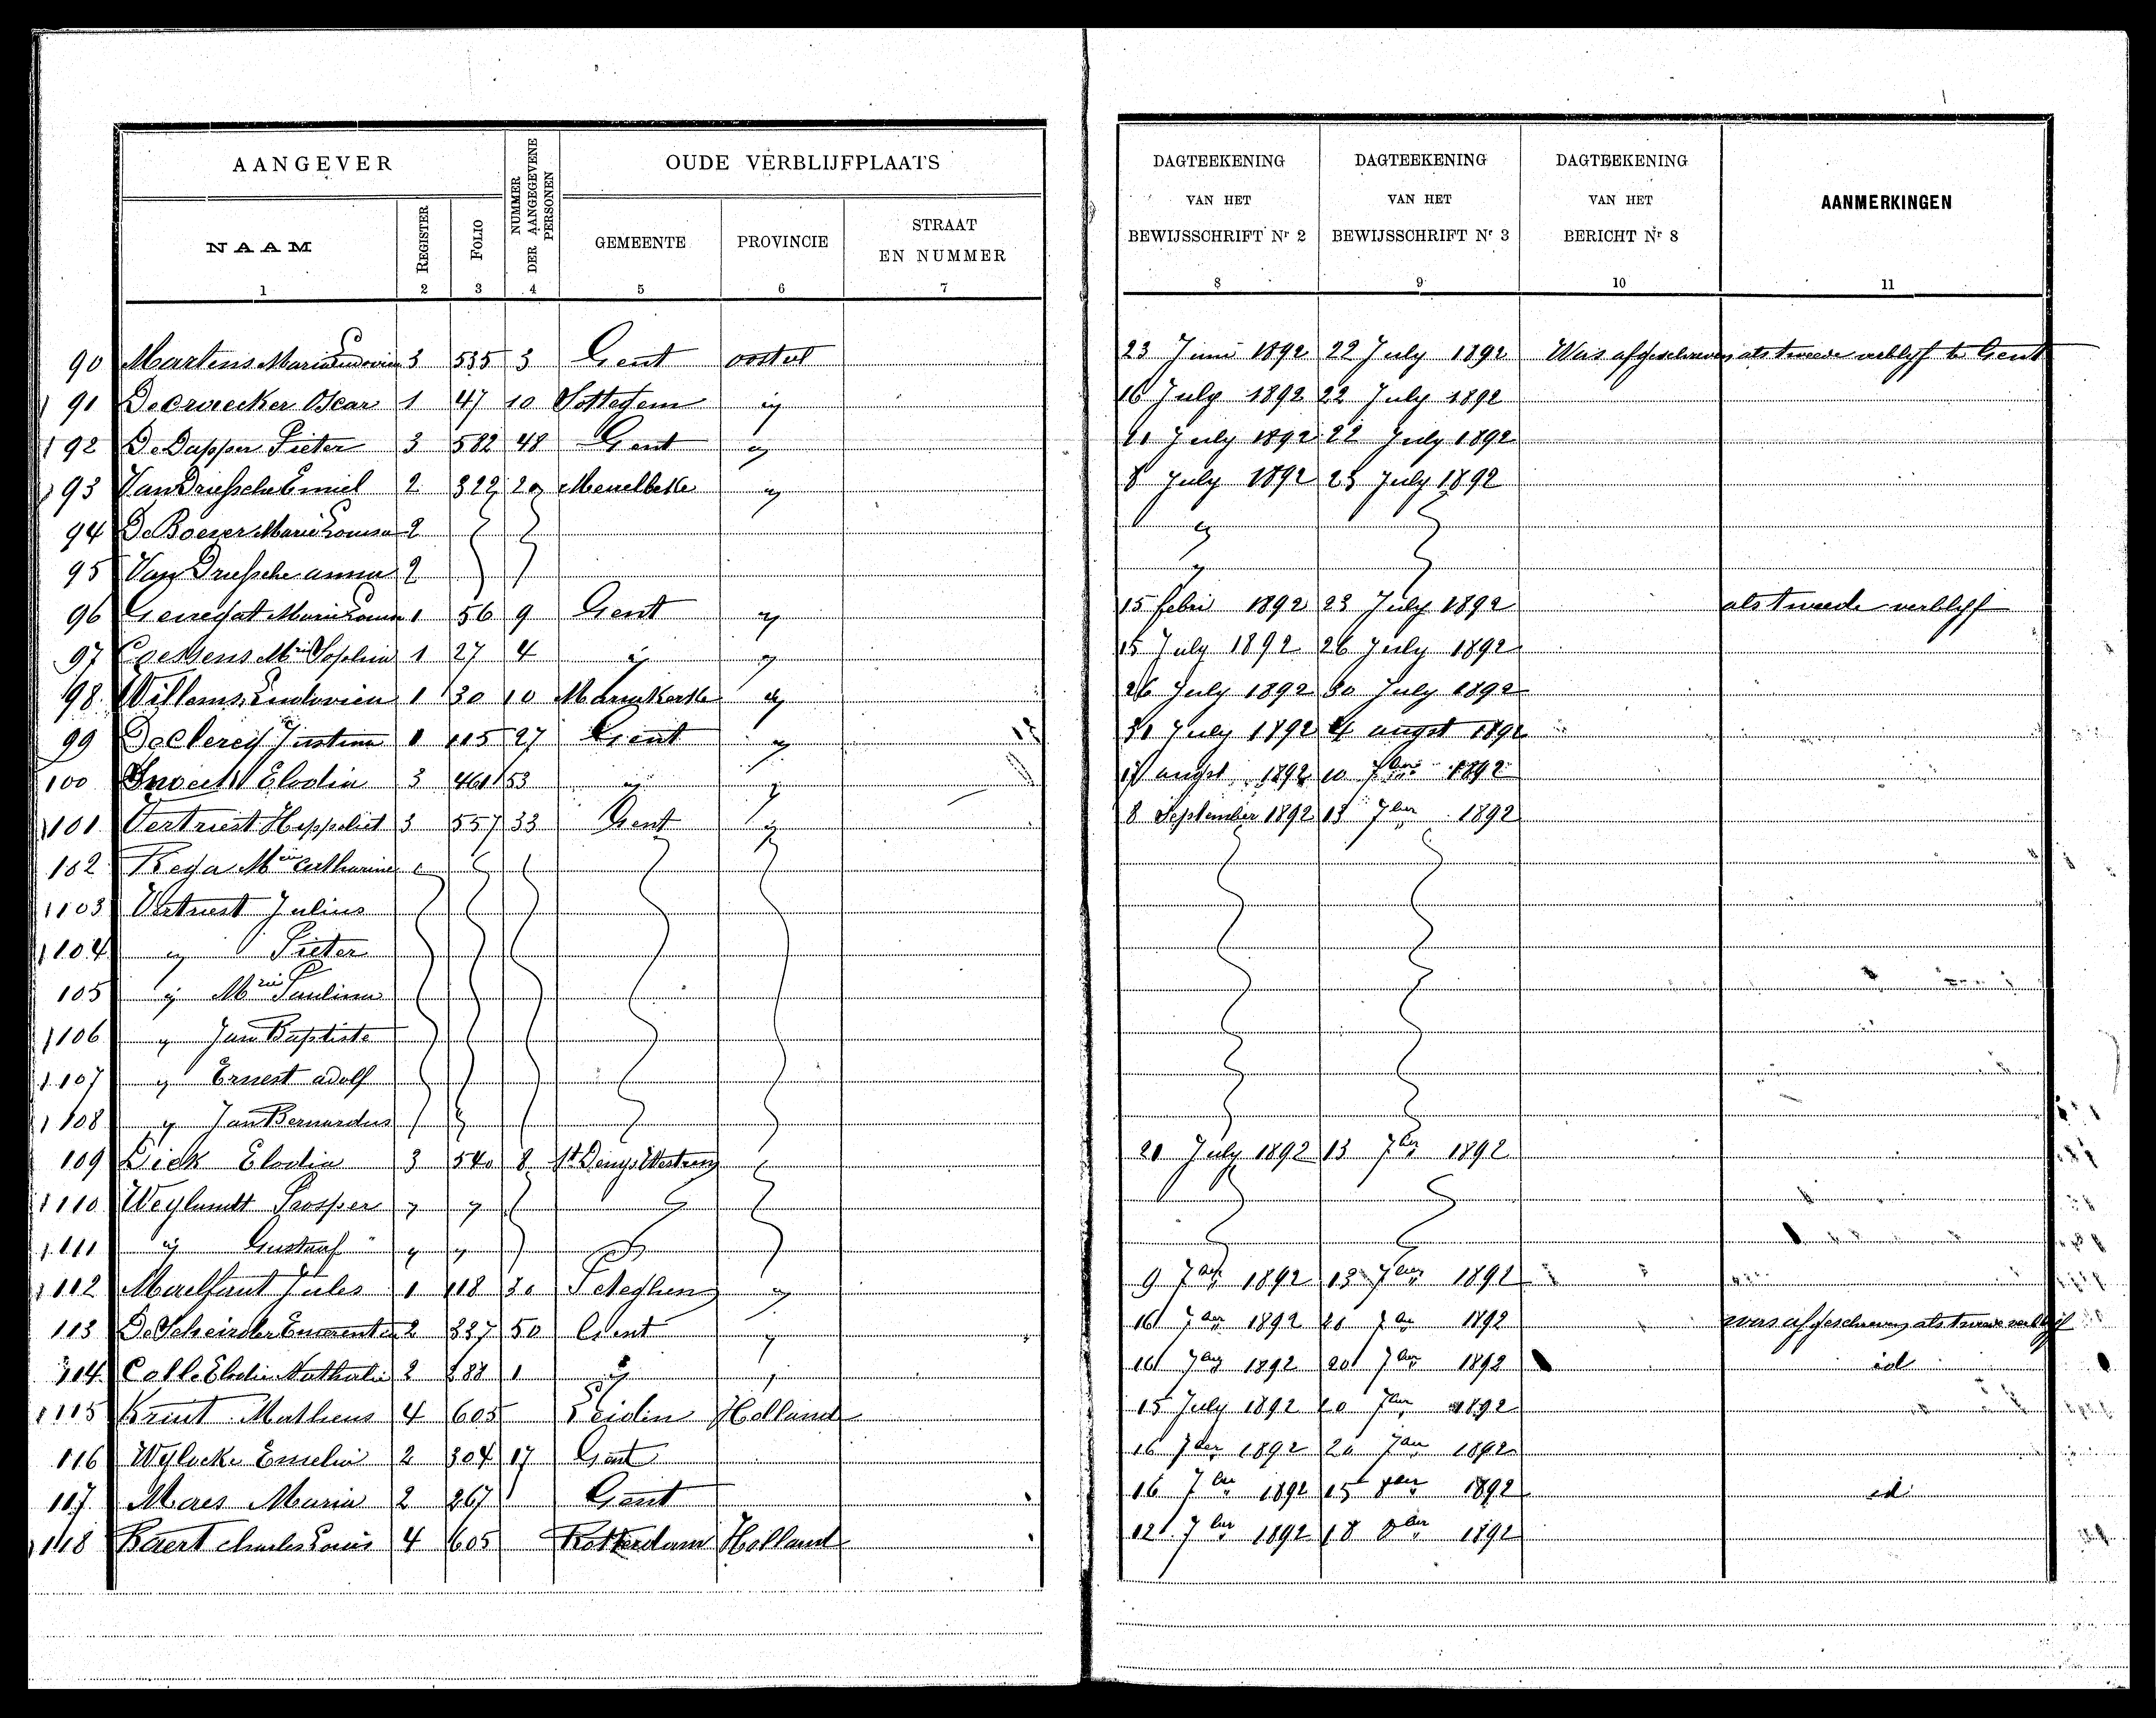 AANGEVER
NUMMER DER AANGEGEVENE PERSONEN
OUDE VERBLIJFPLAATS
NAAM
REGISTER
FOLIO
GEMEENTE
PROVINCIE
STRAAT EN NUMMER
1 2 3 4 5 6 7
DAGTEEKENING VAN HET BEWIJSSCHRIFT Nr 2
DAGTEEKENING VAN HET BEWIJSSCHRIFT Nr 3
DAGTEEKENING VAN HET BERICHT Nr 8
AANMERKINGEN
8 9 10 11
90 Martens Maria Ludovica 3 535 3 Gent oostvl 23 Juni 1892 22 July 1892 Was afgeschreven als tweede verblyf te Gent
91 Oscar 1 47 10 Sottegem ij 16 July 1892 22 July 1892
92 De Dapper Pieter 3 582 48 Gent ij July 1892 22 July 1892
93 Van Driessche Emiel 2 322 20 ij 8 July 1892 23 July 1892
94 De Boever Marie Louisa 2 ij
95 Van Driessche anna 2 ij
96 Marie Louise 1 56 9 Gent ij 15 febri 1892 23 July 1892 als tweede verblyf
97 Mrie Sophia 1 27 4 ij ij 15 July 1892 26 July 1892
98 Willems Ludovica 1 30 10 ij 26 July 1892 30 July 1892
99 De Clercq Justina 1 115 27 Gent ij 31 July 1892 4 augst 1892
100 Elodia 3 461 53 ij ij 17 augst 1892 10 7ber 1892
101 Vertriest Hippoliet 3 557 33 Gent ij 8 September 1892 13 7ber 1892
102 Rega Mrie Catharina
103 Vertriest Julius
104 ij Pieter
105 ij Mrie Paulina
106 ij Jan Baptiste
107 ij Ernest adolf
108 ij Jan Bernardus
109 Dick Elodia 3 540 8 St Denys Westrem 20 July 1892 13 7ber 1892
110 Weylandt Prosper ij ij
111 ij Gustaaf ij ij
112 Maelfait Jules 1 118 30 Peteghem ij 9 7ber 1892 13 7ber 1892
113 2 337 50 Gent ij 16 7ber 1892 20 7ber 1892 was afgeschreven als tweede verblijf
114 Calle Elodie Nathalie 2 1 ij 16 7ber 1892 20 7ber 1892 id
115 Matheus 4 605 Holland 15 July 1892 20 7ber 1892
116 Wylocke Emelie 2 304 17 Gent 16 7ber 1892 20 7ber 1892
117 Maes Maria 2 267 1 Gent 16 7ber 1892 15 8ber 1892 id
118 Baert Charles Louis 4 605 Rotterdam Holland 121 7ber 1892 18 8ber 1892